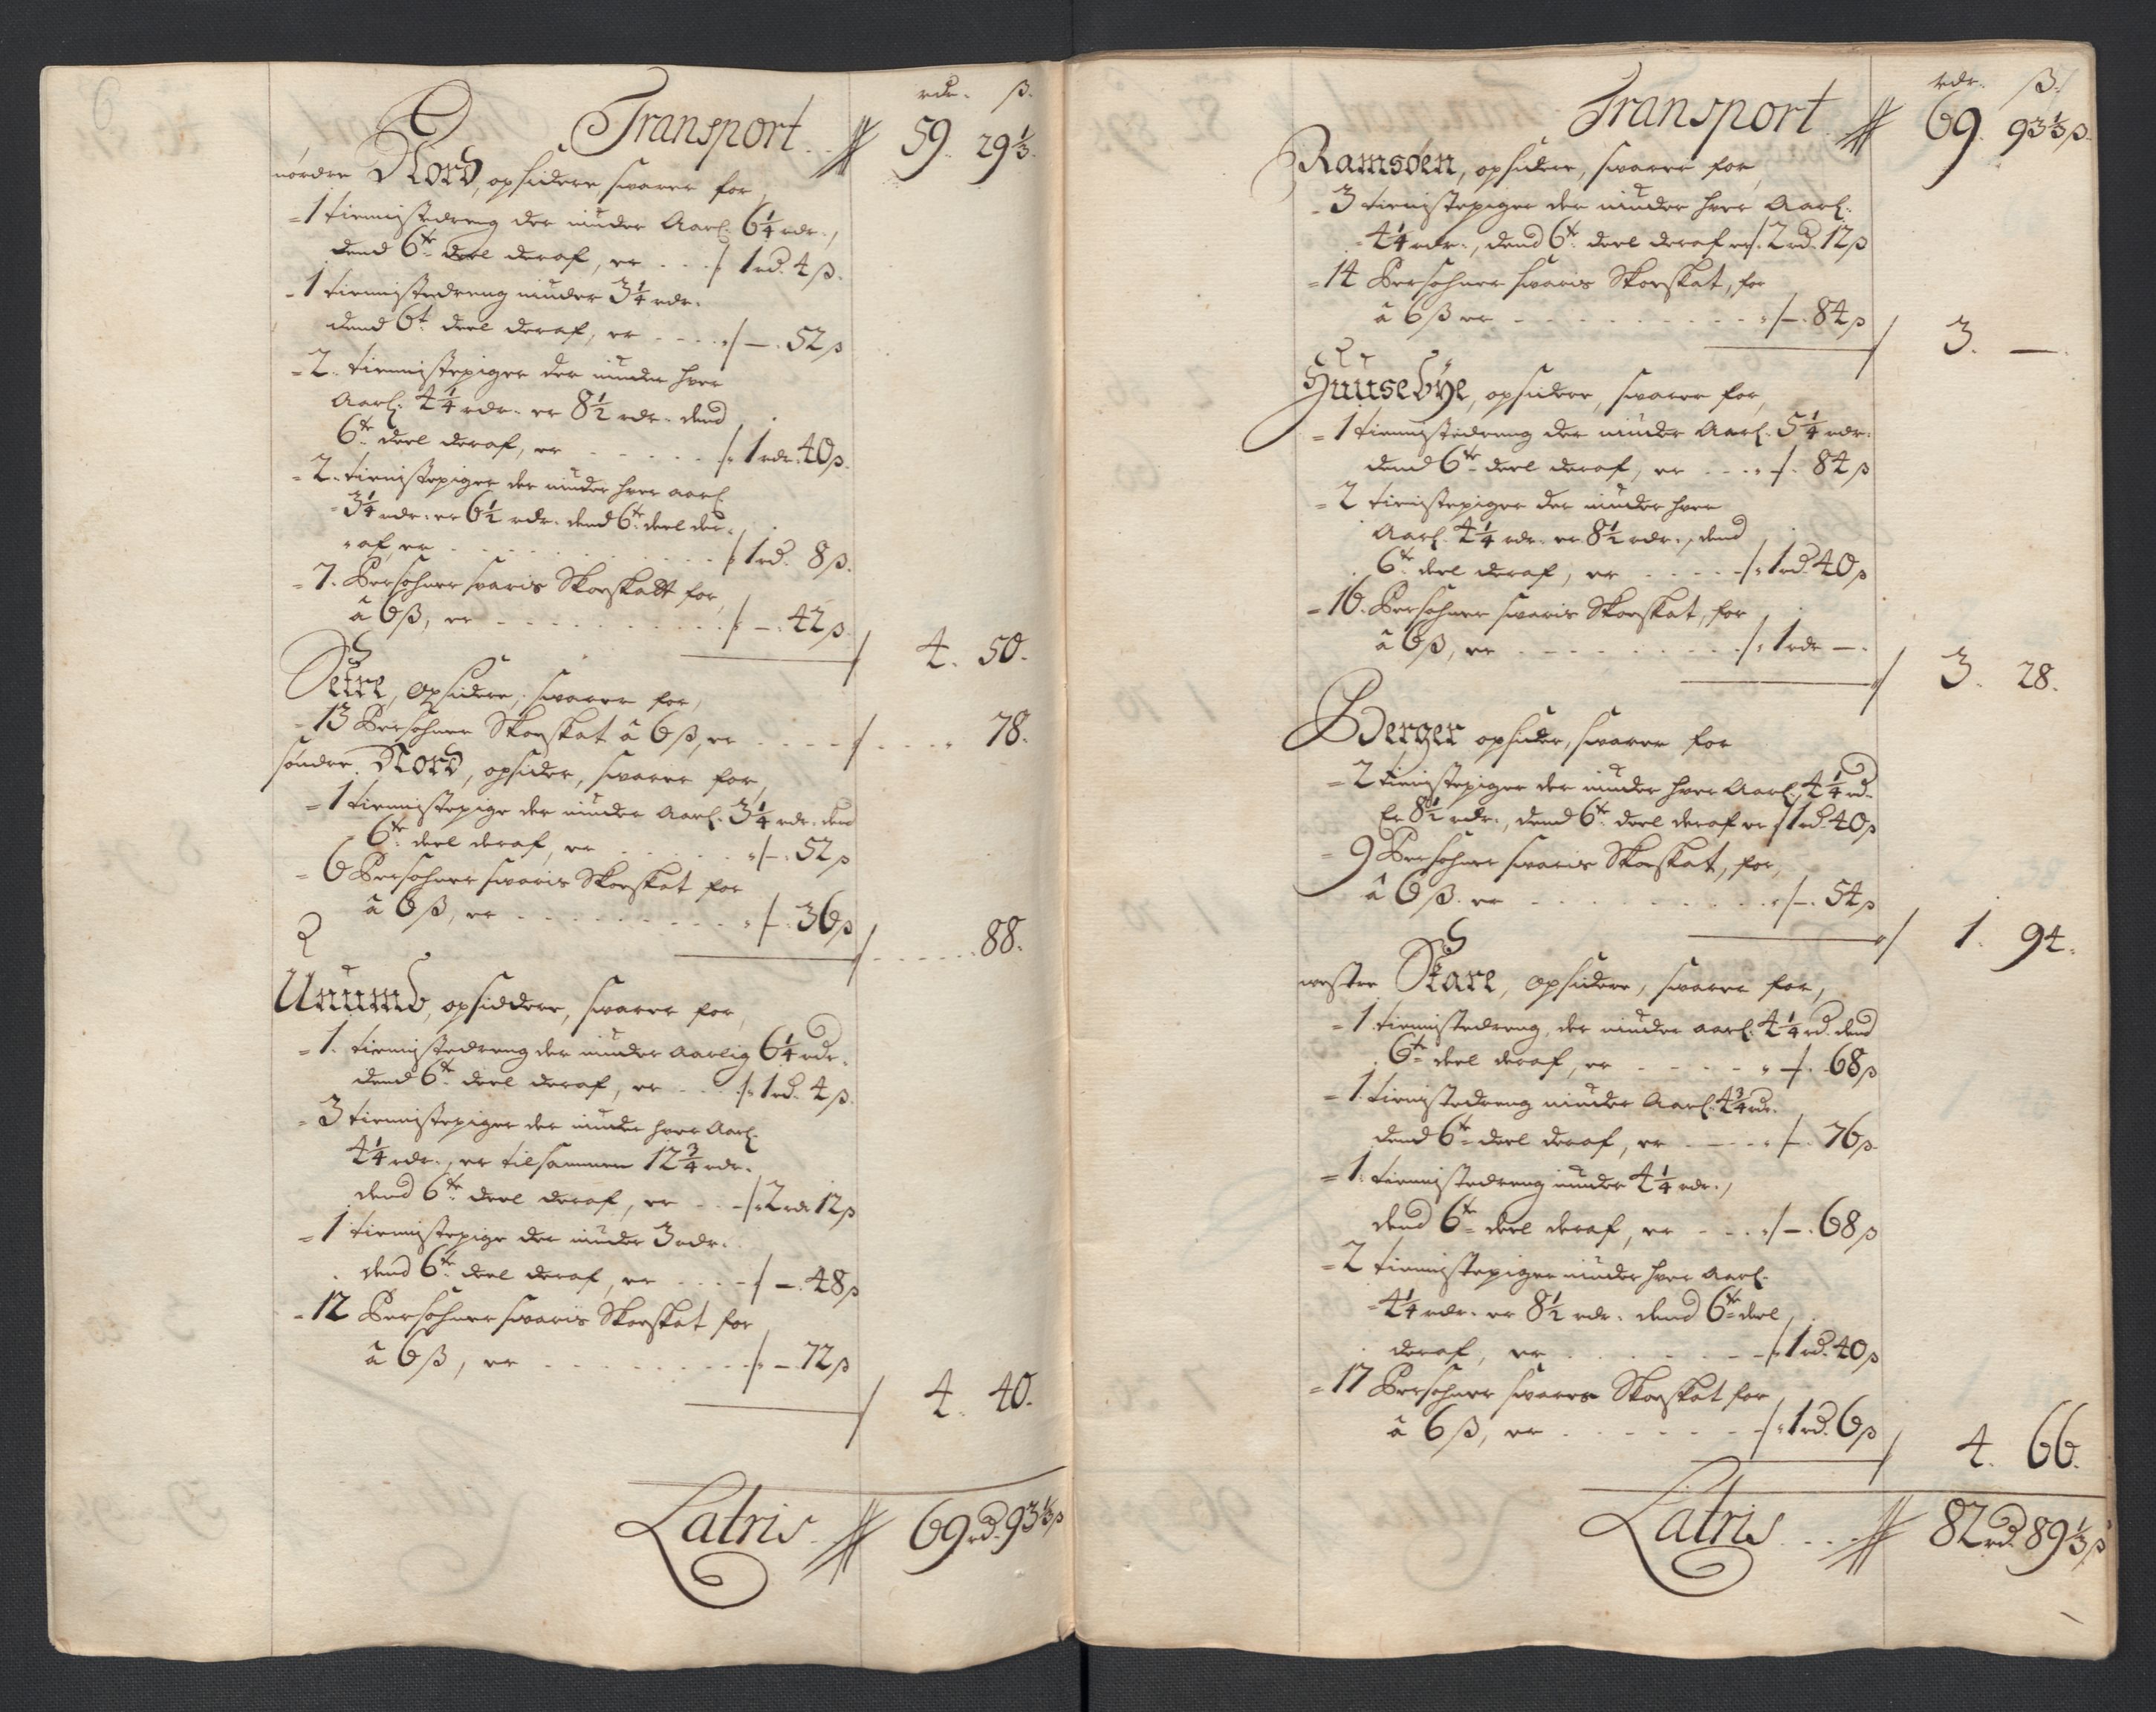 rdr. ß.
Transport 59. 29 1/3.
nordre Nord, opsidere svarer for,
- 1 tiennistedreng der niuder Aarl. 6 1/4 rdr.,
dend 6te deel deraf, er 1 rd. 4 ß.
- 1 tiennistedreng niuder 3 1/4 rdr.
dend 6te deel deraf, er — 52 ß
- 2. tiennistepiger der niuder hver
Aarl. 4 1/4 rdr. er 8 1/2 rdr. dend
6te deel deraf, er 1 rdr. 40 ß.
- 2. tienistepiger der niuder hver aarl.
3 1/4 rdr. er 6 1/2 rdr. dend 6te deel der-
af, er 1 rd. 8 ß.
- 7. Persohner svaris Skoeskatt for,
â 6 ß, er — 42 ß.
4. 50.
Setre, Opsidere, svarer for,
- 13 Persohner Skoeskat â 6 ß, er 78.
söndre Nord, opsider, svarer for,
- 1 tiennistepige der niuder Aarl. 3 1/4 rdr. dend
6te deel deraf, er — 52 ß
- 6 Persohner svaris Skoeskat for
â 6 ß, er — 36 ß
88.
Unumb, opsiddere, svarer for,
- 1. tiennistedreng der niuder Aarlig 6 1/4 rdr.
dend 6te deel deraf, er 1 rd. 4 ß.
- 3 tiennistepiger der niuder hver Aarl.
4 1/4 rdr., er tilsammen 12 3/4 rdr.
dend 6te deel deraf, er 2 rdr 12 ß
- 1 tiennistepige der niuder 3 rdr.
dend 6te deel deraf, er — 48 ß
- 12 Persohner svaris Skoeskat for
â 6 ß, er — 72 ß
4. 40.
Latris 69 rd. 93 1/3 ß
rdr. ß.
Transport 69. 93 1/3 ß.
Ramsöen, opsidere, svarer for,
- 3 tienistepiger der niuder hver Aarl.
4 1/4 rdr., dend 6te deel deraf er 2 rd. 12 ß
- 14 Persohner svaris Skoeskat, for
â 6 ß er — 84 ß
3. —.
Huusebÿe, opsidere, svarer for,
- 1 tiennistedreng der niuder Aarl. 5 1/4 rdr.
dend 6te deel deraf, er — 84 ß
- 2 tienistepiger der niuder hver
Aarl. 4 1/4 rdr. er 8 1/2 rdr., dend
6te deel deraf, er 1 rd. 40 ß
- 16. Persohner svaris Skoeskat, for
â 6 ß, er 1 rdr —.
3. 28.
Berger opsider, svarer for
- 2 tienistepiger der niuder hver Aarl. 4 1/4 rd.
Er 8 1/2 rdr., dend 6te deel deraf er 1 rd. 40 ß
- 9 Persohner svaris Skoeskat, for,
â 6 ß. er — 54 ß
1. 94.
westre Skare, Opsidere, svarer for,
- 1. tiennistedreng, der niuder aarl. 4 1/4 rd. dend
6te deel deraf, er — 68 ß
- 1. tienistedreng niuder Aarl. 4 3/4 rdr.
dend 6te deel deraf, er — 76 ß
- 1. tiennistedreng niuder 4 1/4 rdr.,
dend 6te deel deraf, er — 68 ß
- 2 tiennistepiger niuder hver Aarl.
4 1/4 rdr. er 8 1/2 rdr. dend 6te deel
deraf, er 1 rd. 40 ß
- 17 Persohner svares Skoeskat for
â 6 ß, er 1 rd. 6 ß
4. 66.
Latris 82 rd. 89 1/3 ß